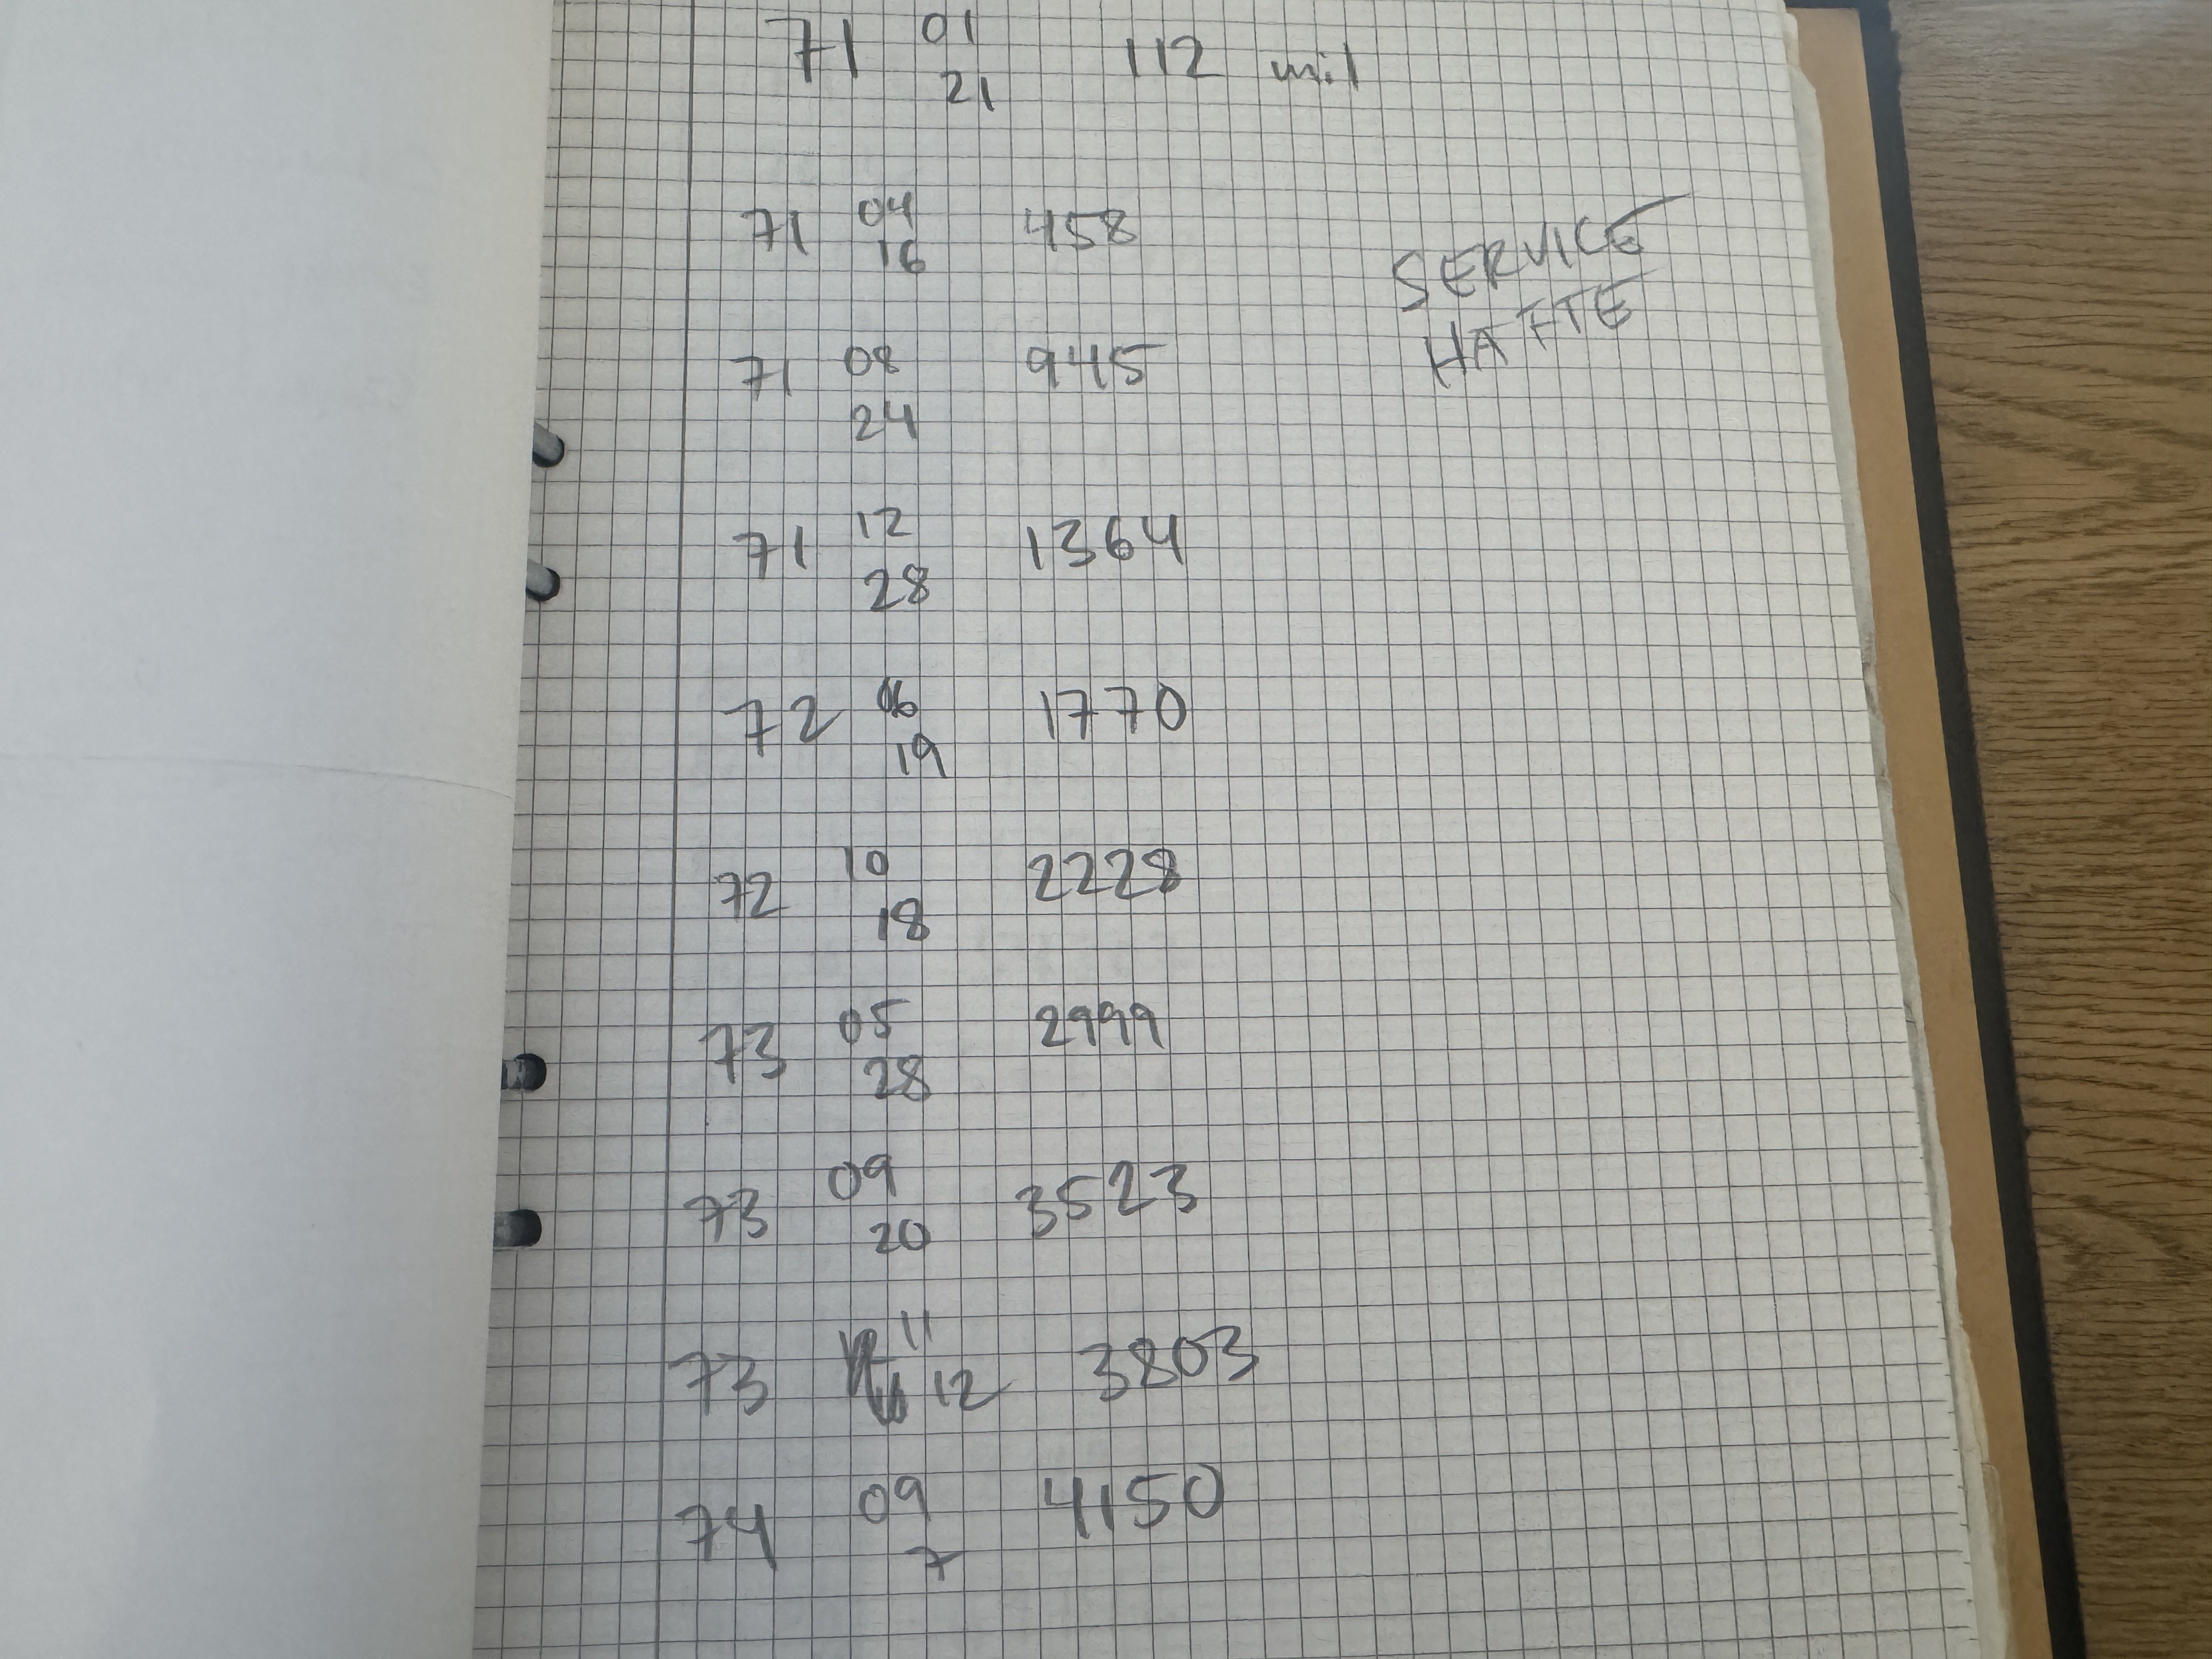 71 01 112 mil
21
71 04 458
16
SERVICE
HAFTE
71 08 945
24
71 12 1364
28
72 06 1770
19
72 10 2228
18
73 05 2999
28
73 09 3523
20
73 11 3803
12
74 09 4150
7